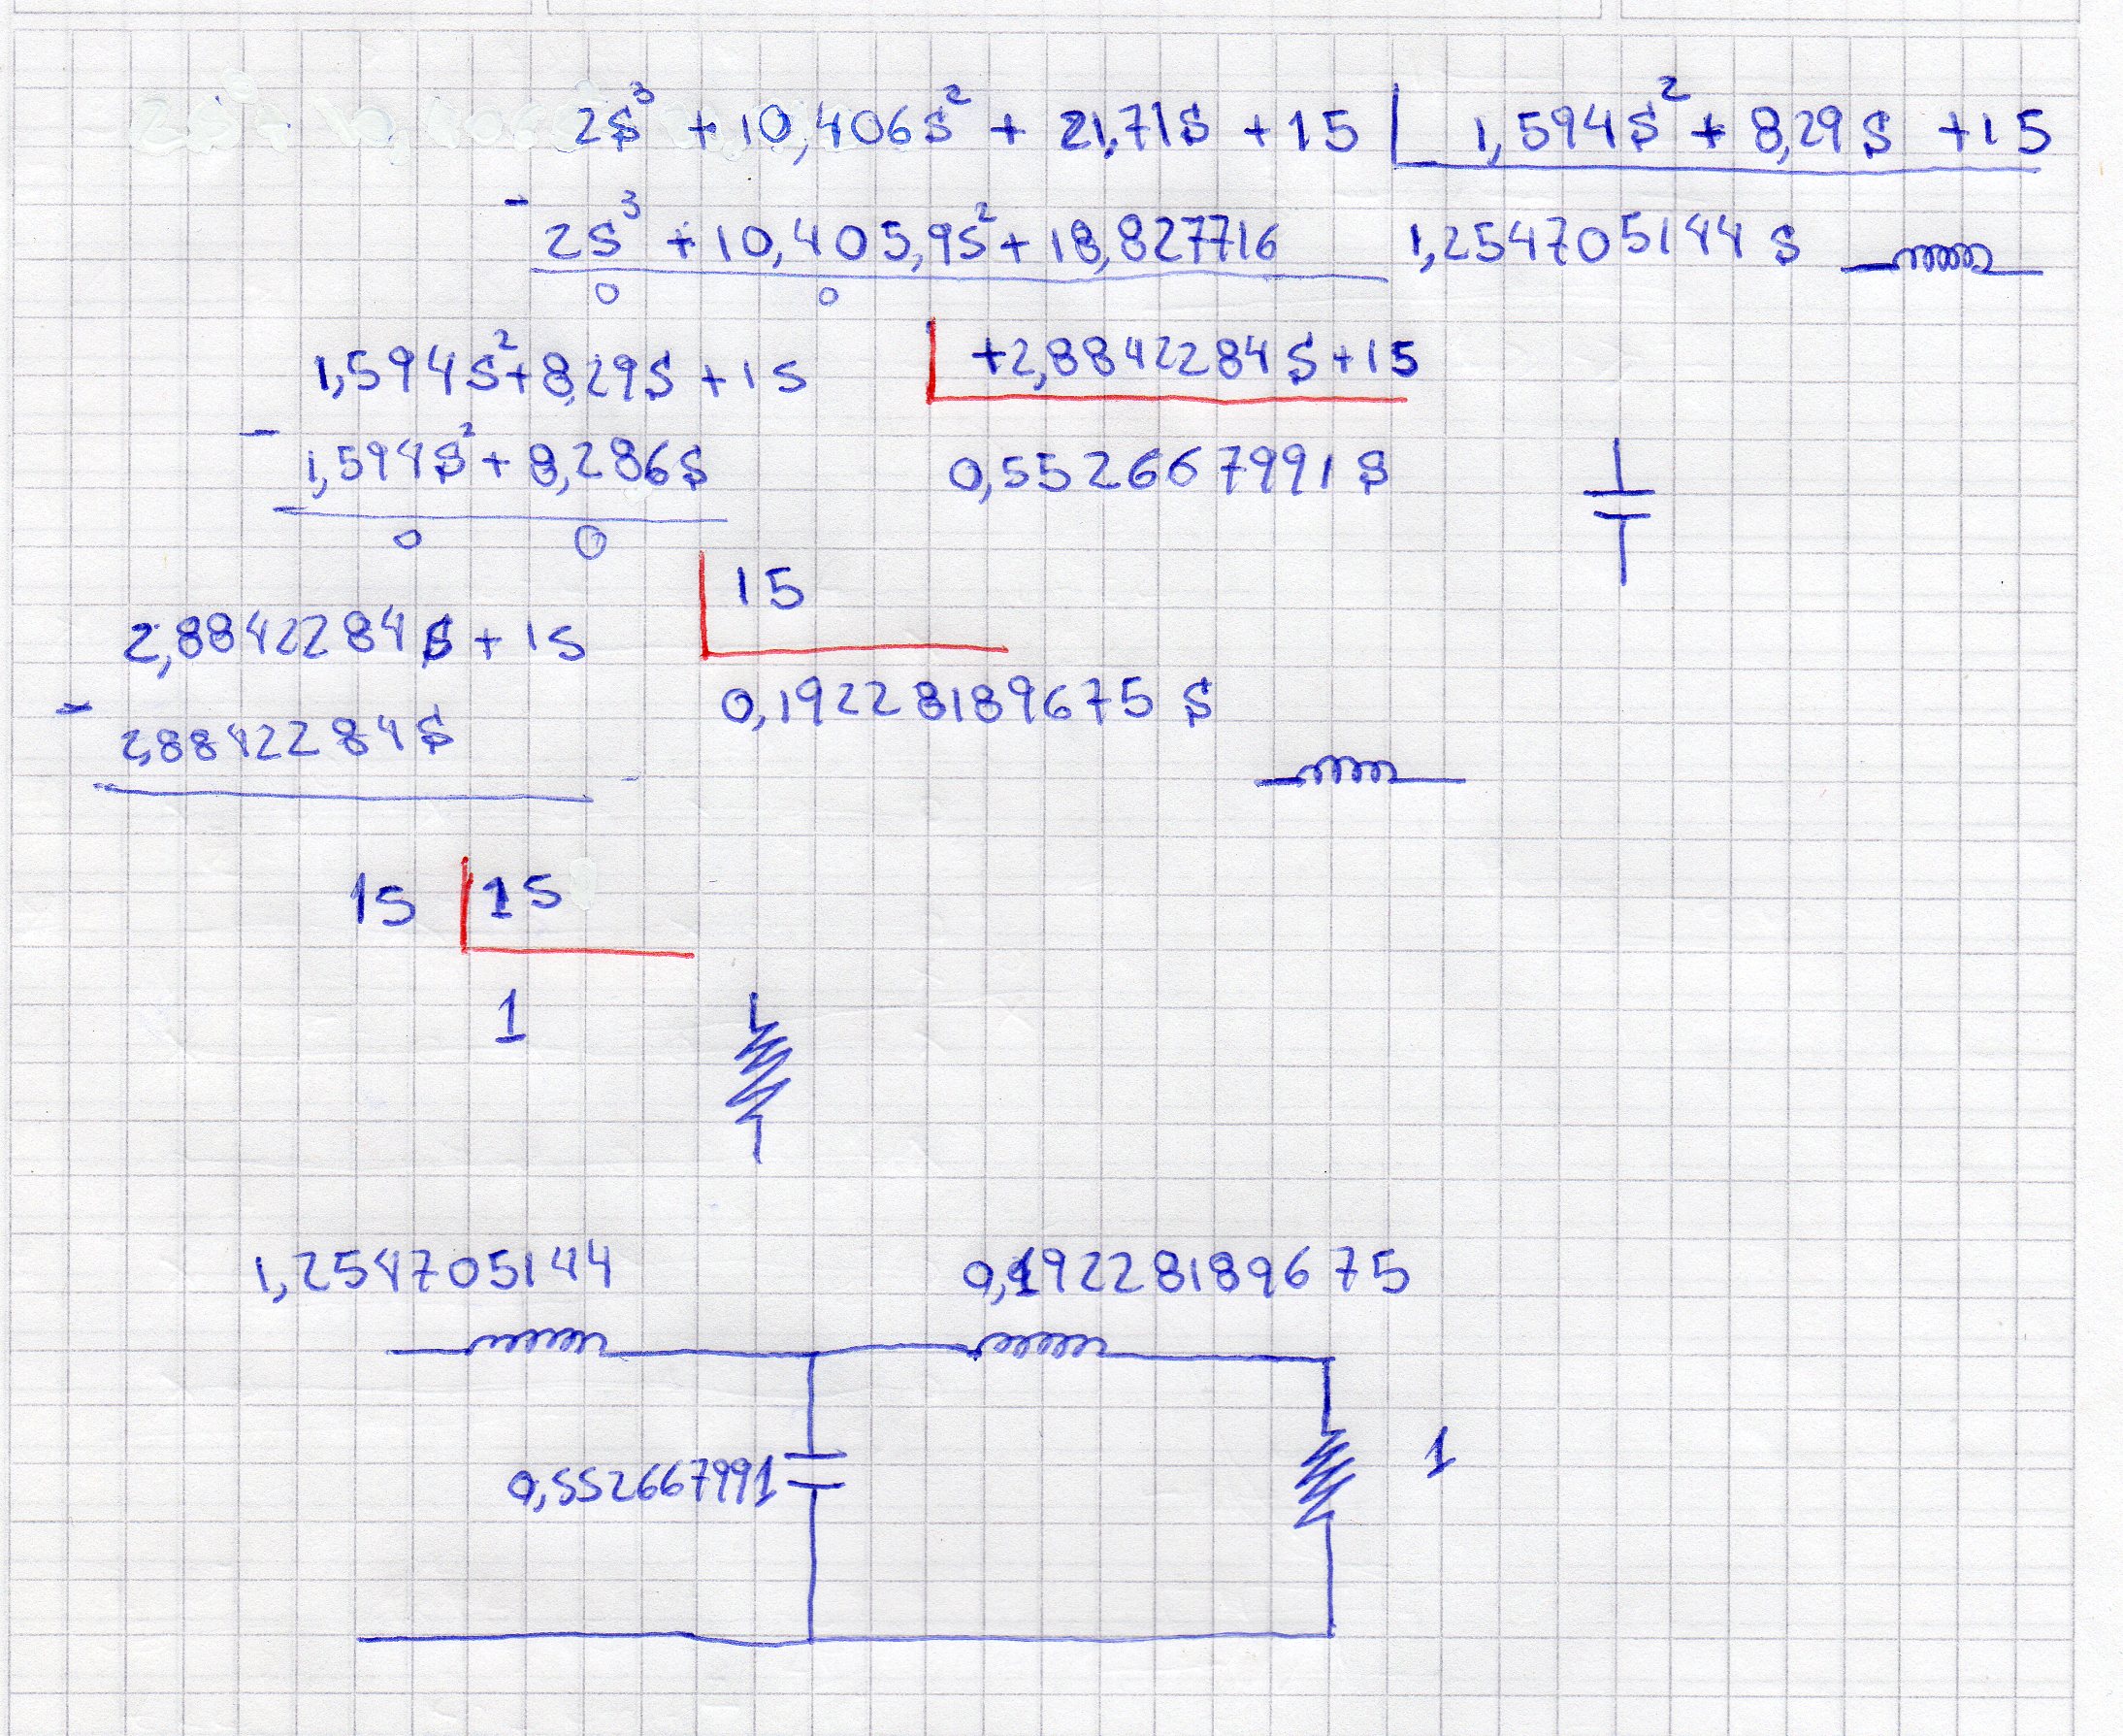 2s³ + 10,406s² + 21,71s + 15 | 1,594s² + 8,29s + 15
- 2s³ + 10,405,9s² + 18,827716 1,254705144 s
0 0
1,594s² + 8,29s + 15 | +2,8842284s + 15
- 1,594s² + 8,286s 0,552667991 s
0 0
2,8842284s + 15 | 15
- 2,8842284s 0,19228189675 s
15 | 15
1
1,254705144 0,19228189675
0,552667991 1